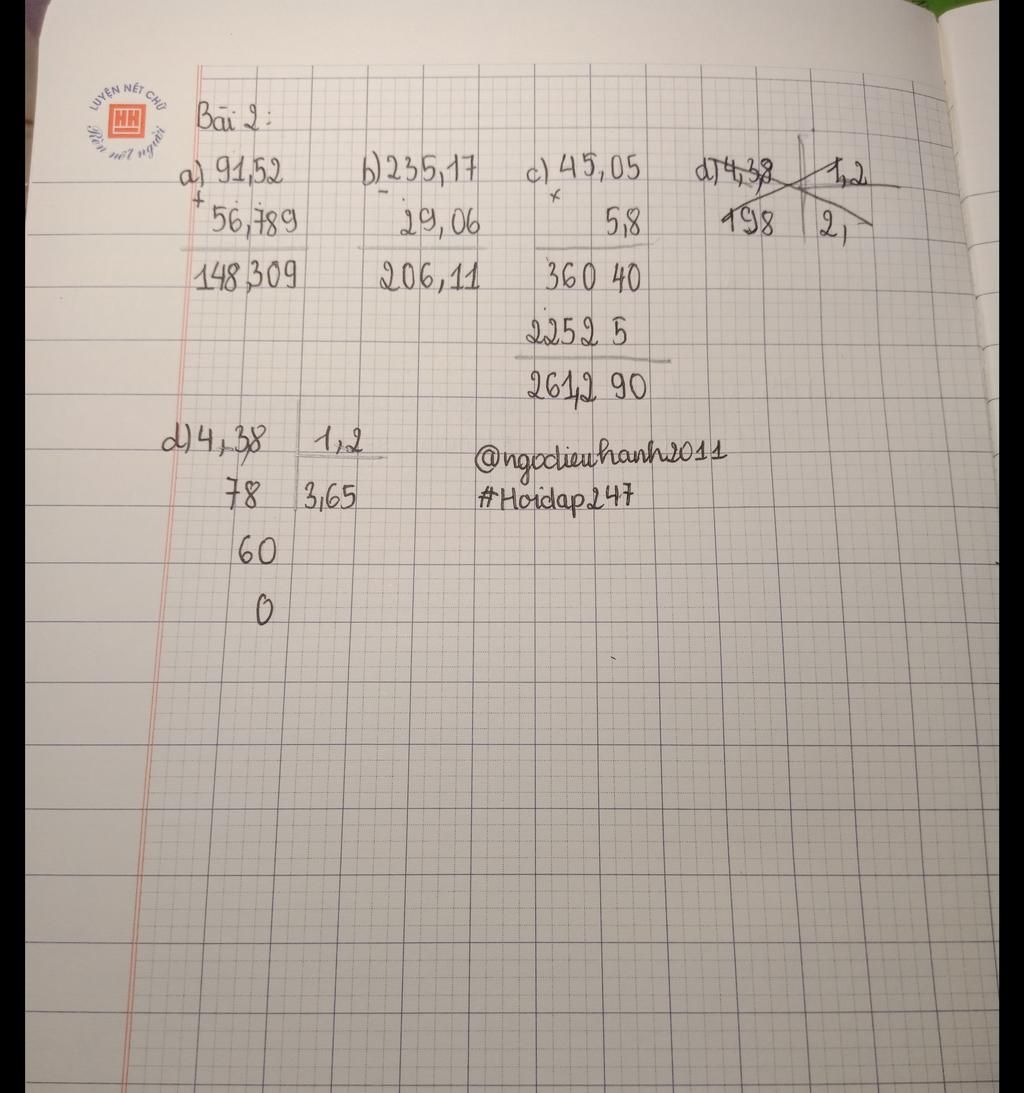 LUYỆN NẾT CHỮ
HH
Rèn nết người
Bài 2:
a) 91,52 b) 235,17 c) 45,05 d) 4,38 1,2
+ - ×
56,789 29,06 5,8 198 2,
148,309 206,11 360 40
2252 5
261,2 90
d) 4,38 1,2
78 3,65
60
0
@ngodieuhanh2011
#Hoidap247